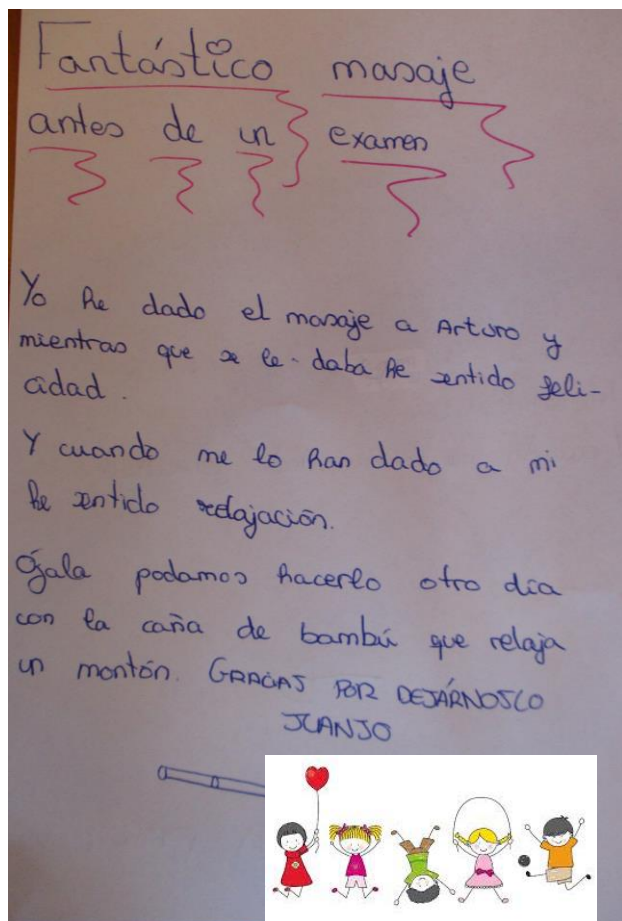 Fantástico masaje
antes de un examen
Yo he dado el masaje a Arturo y
mientras que se le daba he sentido feli-
cidad.
Y cuando me lo han dado a mi
he sentido relajación.
Ójala podamos hacerlo otro día
con la caña de bambú que relaja
un montón. GRACIAS POR DEJÁRNOSLO
JUANJO